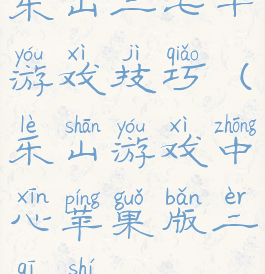 乐山二七年
yóu xì jì qiǎo
游戏技巧（
lè shān yóu xì zhōng
乐山游戏中
xīn píng guǒ bǎn èr
心苹果版二
qī shí